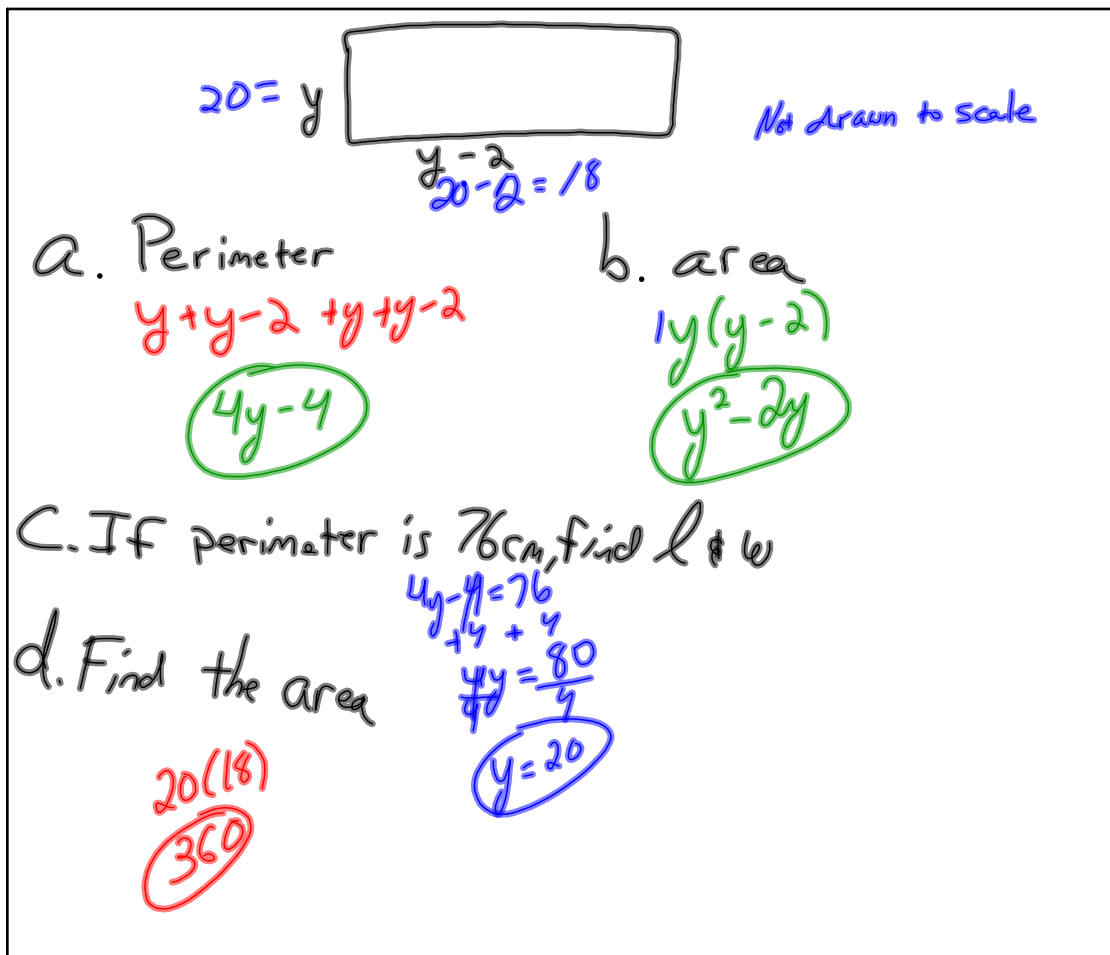 20= y
Not drawn to scale
y - 2
20-2 = 18
a. Perimeter
y+y-2 +y+y-2
4y-4
b. area
1y(y-2)
y²-2y
C. If perimeter is 76cm, find l & w
4y-4=76
+4 +4
4y = 80
4 4
y=20
d. Find the area
20(18)
360